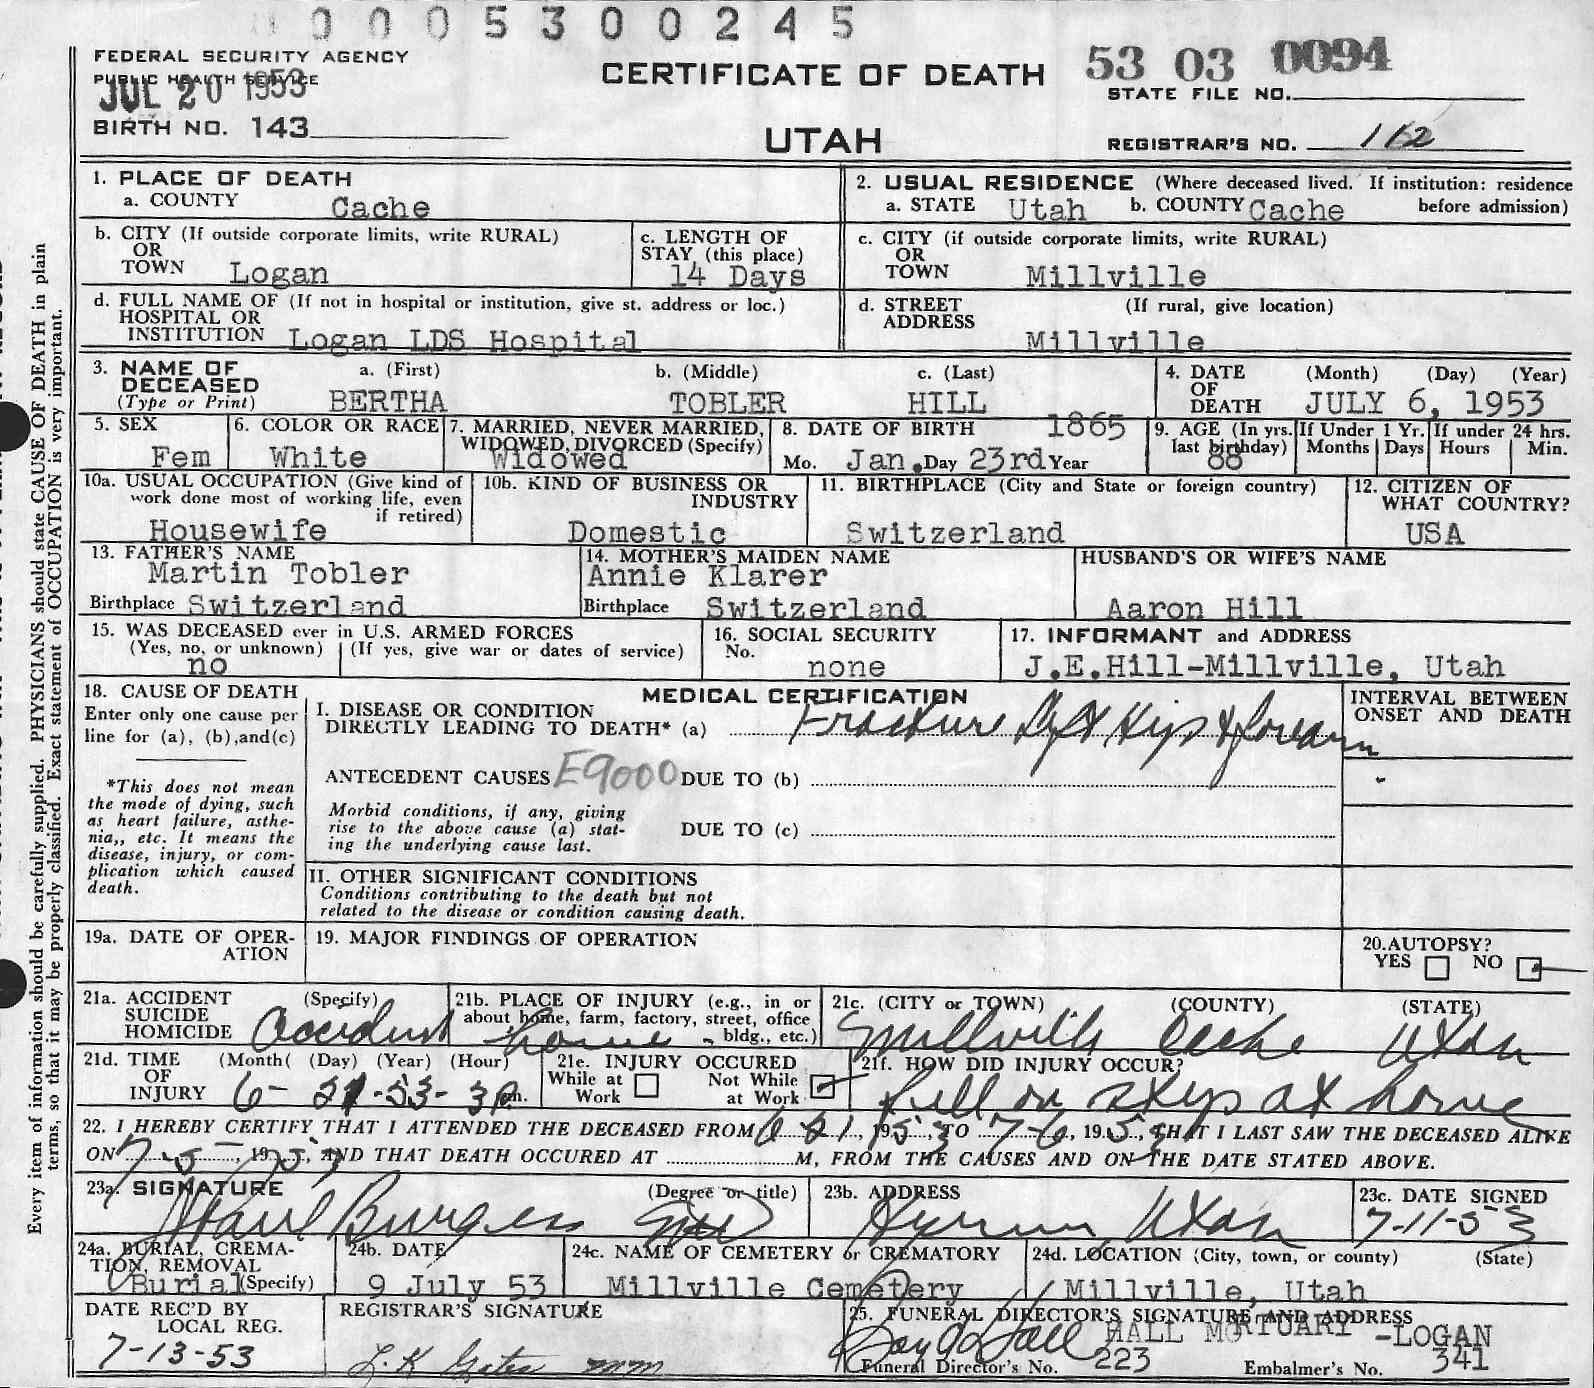 0 0 0 5 3 0 0 2 4 5
FEDERAL SECURITY AGENCY
PUBLIC HEALTH SERVICE
JUL 20 1953
BIRTH NO. 143
CERTIFICATE OF DEATH
UTAH
53 03 0094
STATE FILE NO.
REGISTRAR'S NO. 112
1. PLACE OF DEATH
a. COUNTY Cache
2. USUAL RESIDENCE (Where deceased lived. If institution: residence before admission)
a. STATE Utah b. COUNTY Cache
b. CITY (If outside corporate limits, write RURAL)
OR
TOWN Logan
c. LENGTH OF
STAY (this place)
14 Days
c. CITY (if outside corporate limits, write RURAL)
OR
TOWN Millville
d. FULL NAME OF (If not in hospital or institution, give st. address or loc.)
HOSPITAL OR
INSTITUTION Logan LDS Hospital
d. STREET (If rural, give location)
ADDRESS
Millville
3. NAME OF
DECEASED
(Type or Print)
a. (First) b. (Middle) c. (Last)
BERTHA TOBLER HILL
4. DATE (Month) (Day) (Year)
OF
DEATH JULY 6, 1953
5. SEX
Fem
6. COLOR OR RACE
White
7. MARRIED, NEVER MARRIED,
WIDOWED, DIVORCED (Specify)
Widowed
8. DATE OF BIRTH 1865
Mo. Jan. Day 23rd Year
9. AGE (In yrs. last birthday)
88
If Under 1 Yr.
Months Days
If under 24 hrs.
Hours Min.
10a. USUAL OCCUPATION (Give kind of
work done most of working life, even
if retired)
Housewife
10b. KIND OF BUSINESS OR
INDUSTRY
Domestic
11. BIRTHPLACE (City and State or foreign country)
Switzerland
12. CITIZEN OF
WHAT COUNTRY?
USA
13. FATHER'S NAME
Martin Tobler
Birthplace Switzerland
14. MOTHER'S MAIDEN NAME
Annie Klarer
Birthplace Switzerland
HUSBAND'S OR WIFE'S NAME
Aaron Hill
15. WAS DECEASED ever in U.S. ARMED FORCES
(Yes, no, or unknown) (If yes, give war or dates of service)
no
16. SOCIAL SECURITY
No.
none
17. INFORMANT and ADDRESS
J.E.Hill-Millville, Utah
18. CAUSE OF DEATH
Enter only one cause per
line for (a), (b),and(c)
*This does not mean
the mode of dying, such
as heart failure, asthe-
nia,, etc. It means the
disease, injury, or com-
plication which caused
death.
MEDICAL CERTIFICATION
I. DISEASE OR CONDITION
DIRECTLY LEADING TO DEATH* (a) Fracture Left Hip & forearm
ANTECEDENT CAUSES E9000 DUE TO (b)
Morbid conditions, if any, giving
rise to the above cause (a) stat-
ing the underlying cause last.
DUE TO (c)
INTERVAL BETWEEN
ONSET AND DEATH
II. OTHER SIGNIFICANT CONDITIONS
Conditions contributing to the death but not
related to the disease or condition causing death.
19a. DATE OF OPER-
ATION
19. MAJOR FINDINGS OF OPERATION
20.AUTOPSY?
YES NO
21a. ACCIDENT (Specify)
SUICIDE
HOMICIDE Accident
21b. PLACE OF INJURY (e.g., in or
about home, farm, factory, street, office
bldg., etc.)
home
21c. (CITY or TOWN) (COUNTY) (STATE)
Millville Cache Utah
21d. TIME (Month( (Day) (Year) (Hour)
OF
INJURY 6- 21-53- 3 p.m.
21e. INJURY OCCURED
While at Work Not While at Work
21f. HOW DID INJURY OCCUR?
fell on steps at home
22. I HEREBY CERTIFY THAT I ATTENDED THE DECEASED FROM 6 21, 1953, TO 7-6, 1953, THAT I LAST SAW THE DECEASED ALIVE
ON 7-5, 1953, AND THAT DEATH OCCURED AT M, FROM THE CAUSES AND ON THE DATE STATED ABOVE.
23a. SIGNATURE (Degree or title)
Burgess MD
23b. ADDRESS
Hyrum Utah
23c. DATE SIGNED
7-11-53
24a. BURIAL, CREMA-
TION, REMOVAL
Burial (Specify)
24b. DATE
9 July 53
24c. NAME OF CEMETERY or CREMATORY
Millville Cemetery
24d. LOCATION (City, town, or county) (State)
Millville, Utah
DATE REC'D BY
LOCAL REG.
7-13-53
REGISTRAR'S SIGNATURE
L. K. Gates mm
25. FUNERAL DIRECTOR'S SIGNATURE AND ADDRESS
Hall HALL MORTUARY -LOGAN
Funeral Director's No. 223 Embalmer's No. 341
Every item of information should be carefully supplied. PHYSICIANS should state CAUSE OF DEATH in plain
terms, so that it may be properly classified. Exact statement of OCCUPATION is very important.